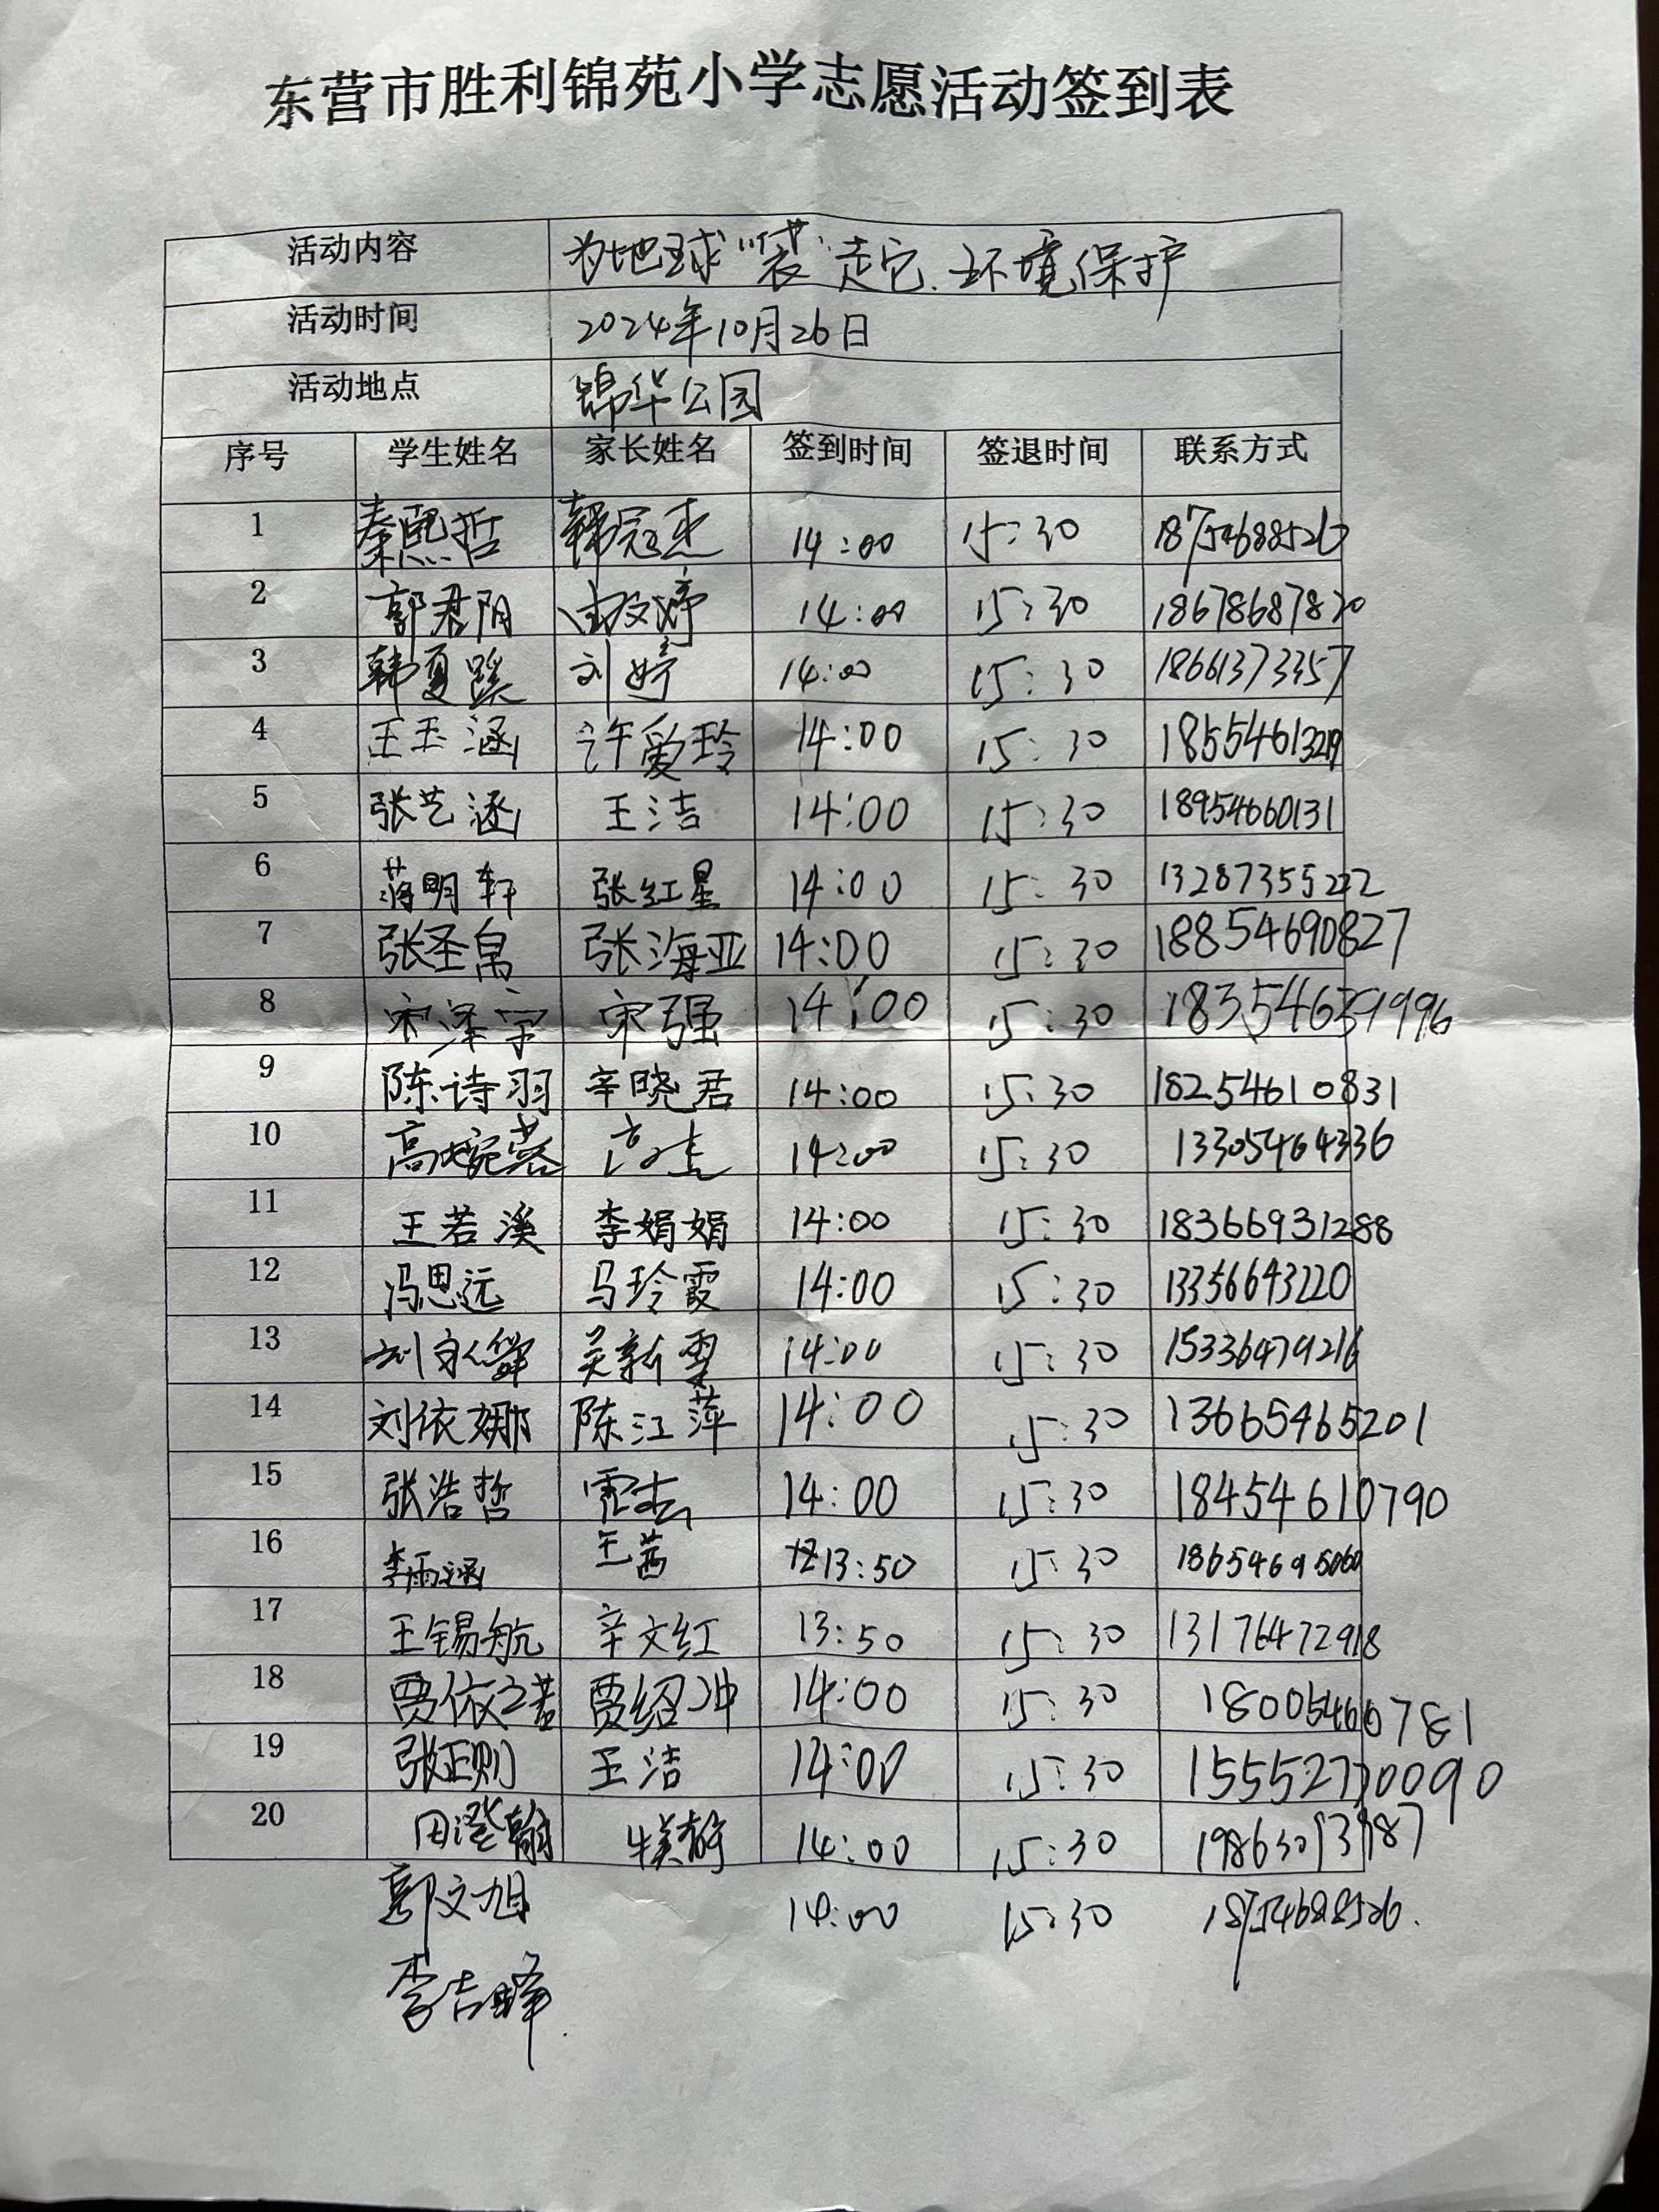 东营市胜利锦苑小学志愿活动签到表
活动内容 为地球"装"走它、环境保护
活动时间 2024年10月26日
活动地点 锦华公园
序号 学生姓名 家长姓名 签到时间 签退时间 联系方式
1 秦熙哲 韩冠杰 14:00 15:30 18754688526
2 郭君阴 14:00 15:30 18678687820
3 韩夏蹊 刘婷 14:00 15:30 18661373357
4 王玉涵 许爱玲 14:00 15:30 18554613219
5 张艺涵 王洁 14:00 15:30 18954660131
6 蒋明轩 张红星 14:00 15:30 13287355222
7 张圣帛 张海亚 14:00 15:30 18854690827
8 宋泽宇 宋强 14:00 15:30 18354639996
9 陈诗羽 辛晓君 14:00 15:30 18254610831
10 高婉蓉 14:00 15:30 13305464336
11 王若溪 李娟娟 14:00 15:30 18366931288
12 冯思远 马玲霞 14:00 15:30 13356643220
13 吴新雯 14:00 15:30 15336479216
14 刘依娜 陈江萍 14:00 15:30 13665465201
15 张浩哲 14:00 15:30 18454610790
16 李雨涵 王茜 13:50 15:30 18654695060
17 王锡航 辛文红 13:50 15:30 13176472918
18 贾依之若 贾绍冲 14:00 15:30 18005460781
19 张正则 王洁 14:00 15:30 15552770090
20 田澄翰 14:00 15:30
郭文旭 14:00 15:30 18754688526.
李吉峰